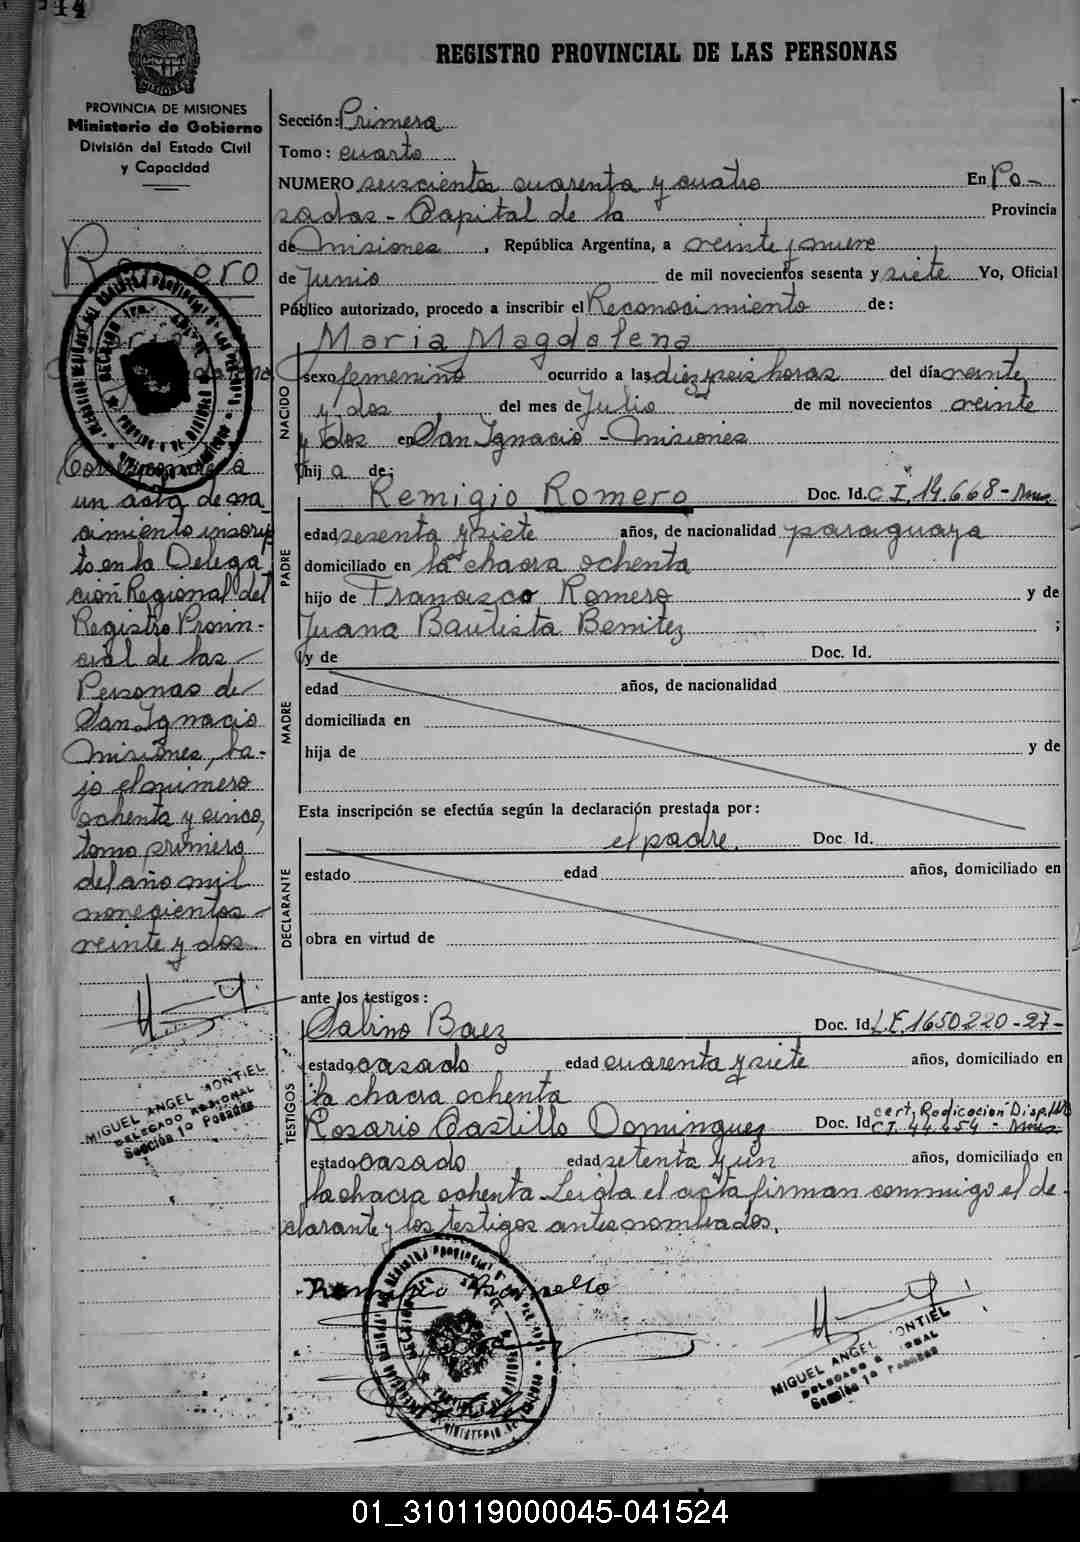 44
REGISTRO PROVINCIAL DE LAS PERSONAS
PROVINCIA DE MISIONES
Ministerio de Gobierno
División del Estado Civil
y Capacidad
Romero
Corresponde a
un acta de na
cimiento inscrip
to en la Delega
ción Regional del
Registro Provin-
cial de las
Personas de
San Ignacio
Misiones, ba-
jo el número
ochenta y cinco,
tomo primero
del año mil
novecientos
veinte y dos
MIGUEL ANGEL MONTIEL
DELEGADO REGIONAL
Sección 1º Posadas
Sección: Primera
Tomo: cuarto
NUMERO seiscientos cuarenta y cuatro En Po-
sadas - Capital de la Provincia
de Misiones, República Argentina, a veinte y nueve
de Junio de mil novecientos sesenta y siete Yo, Oficial
Público autorizado, procedo a inscribir el Reconocimiento de:
NACIDO
Maria Magdalena
sexo femenino ocurrido a las diez y seis horas del día veinte
y dos del mes de Julio de mil novecientos veinte
y dos en San Ignacio - Misiones
hija de:
PADRE
Remigio Romero Doc. Id. C.I. 14.668 - Mnes
edad sesenta y siete años, de nacionalidad paraguaya
domiciliado en la chacra ochenta
hijo de Francisco Romero y de
Juana Bautista Benitez ;
MADRE
y de Doc. Id.
edad años, de nacionalidad
domiciliada en
hija de y de
Esta inscripción se efectúa según la declaración prestada por:
DECLARANTE
el padre. Doc. Id.
estado edad años, domiciliado en
obra en virtud de
ante los testigos:
TESTIGOS
Sabino Baez Doc. Id. L.E. 1650220-27-
estado casado edad cuarenta y siete años, domiciliado en
la chacra ochenta
Rosario Castillo Dominguez Doc. Id. cert. Radicacion Disp.
C.I. 44.654 - Mnes
estado casado edad setenta y un años, domiciliado en
la chacra ochenta. Leida el acta firman conmigo el de-
clarante y los testigos antes nombrados.
MIGUEL ANGEL MONTIEL
DELEGADO REGIONAL
Sección 1º Posadas
01_310119000045-041524